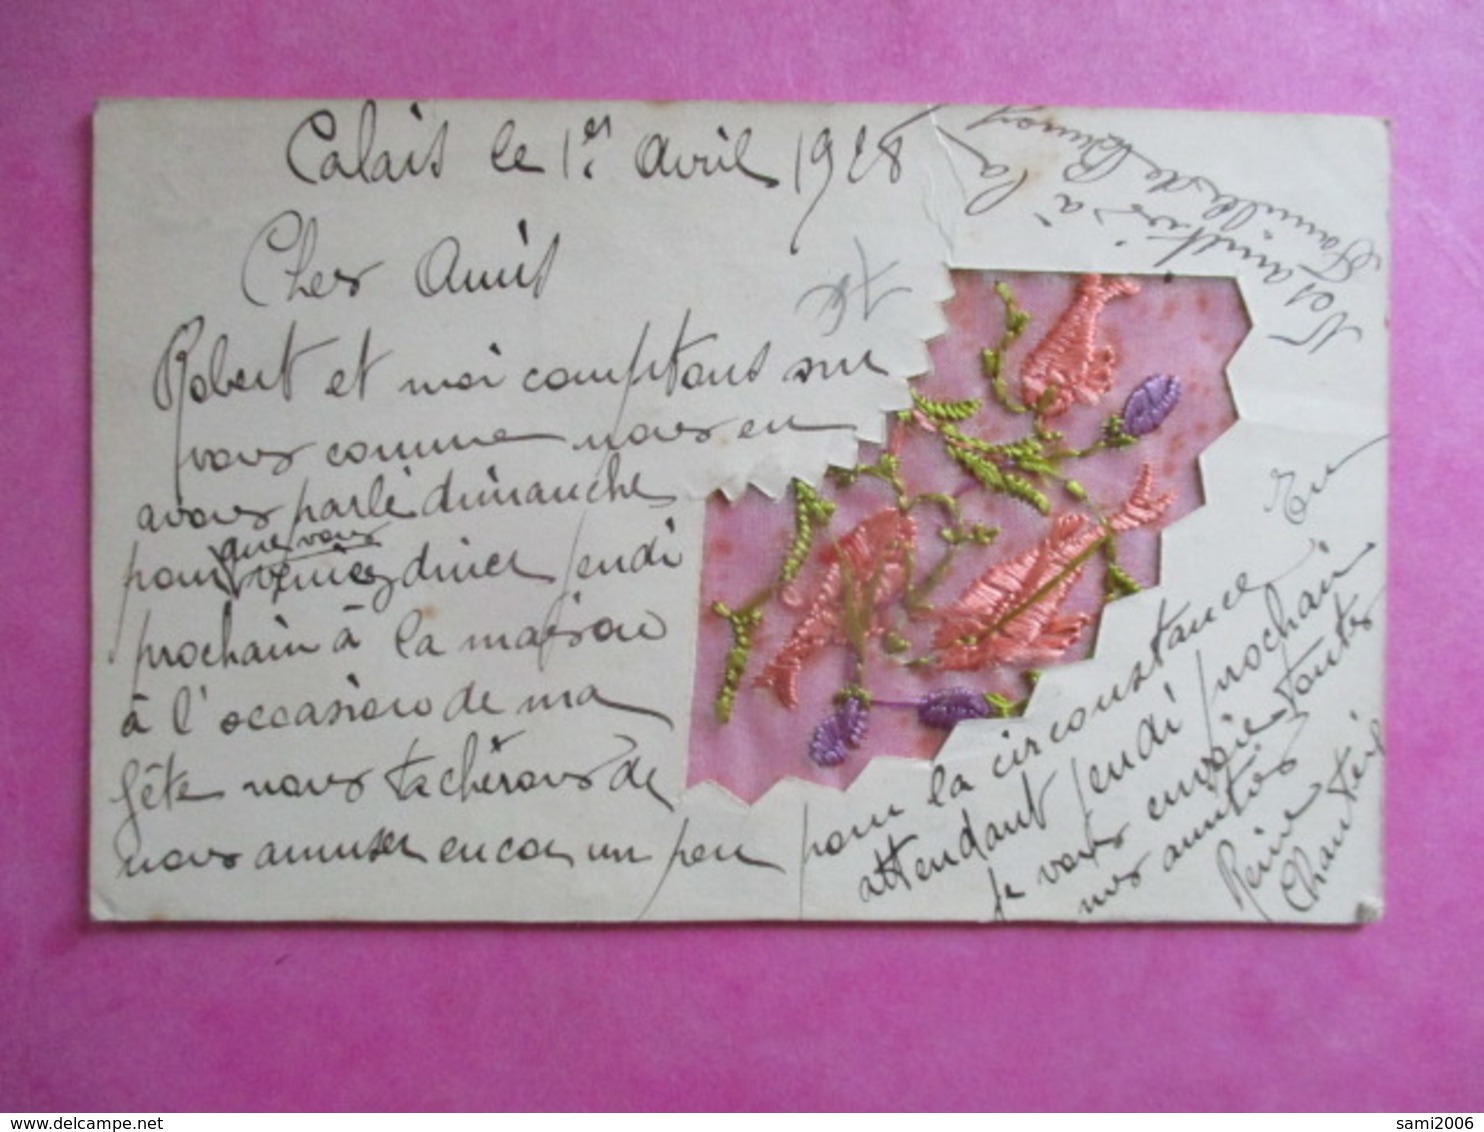 Calais le 1er Avril 1928
Cher Amis
Robert et moi comptons sur
vous comme nous en
avons parlé dimanche
pour que vous veniez diner jeudi
prochain à la maison
à l'occasion de ma
fête nous tacherons de
nous amuser encor un peu
pour la circonstance En
attendant jeudi prochain
je vous envoie toutes
mes amitiés
Reine
Nos amitiés à la
Famille de
sami2006